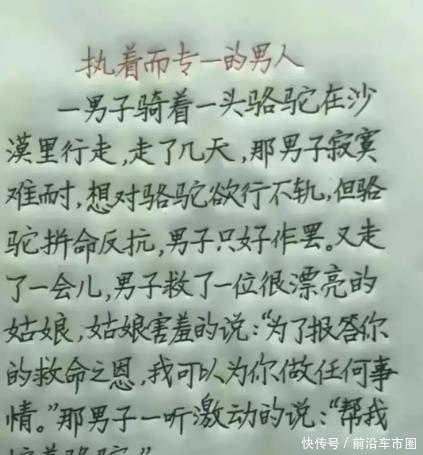 执着而专一的男人
一男子骑着一头骆驼在沙
漠里行走,走了几天,那男子寂寞
难耐,想对骆驼欲行不轨,但骆
驼拼命反抗,男子只好作罢。又走
了一会儿,男子救了一位很漂亮的
姑娘,姑娘害羞的说:“为了报答你
的救命之恩,我可以为你做任何事
情。”那男子一听激动的说:“帮我
快传号/前沿车市圈